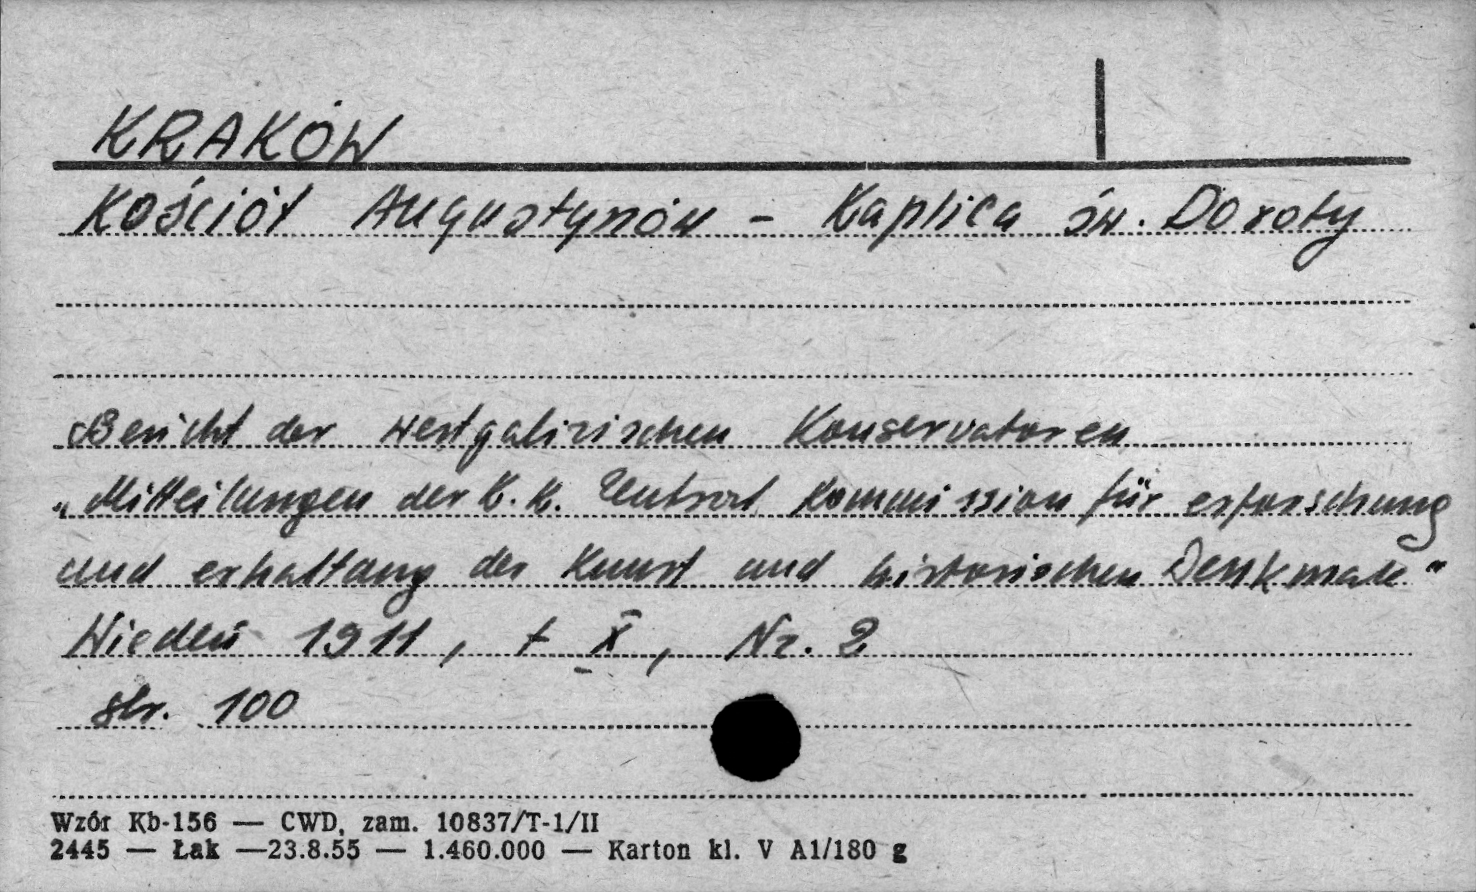 KRAKÓW
Kościół Augustynów - Kaplica św. Doroty
Bericht der westgalizischen Konservatoren
„Mitteilungen der k. k. Zentral Kommission für erforschung
und erhaltung der Kunst und historischen Denkmale"
Wiedeń 1911, t X, Nr. 2
str. 100
Wzór Kb-156 — CWD, zam. 10837/T-1/II
2445 — Łak —23.8.55 — 1.460.000 — Karton kl. V A1/180 g